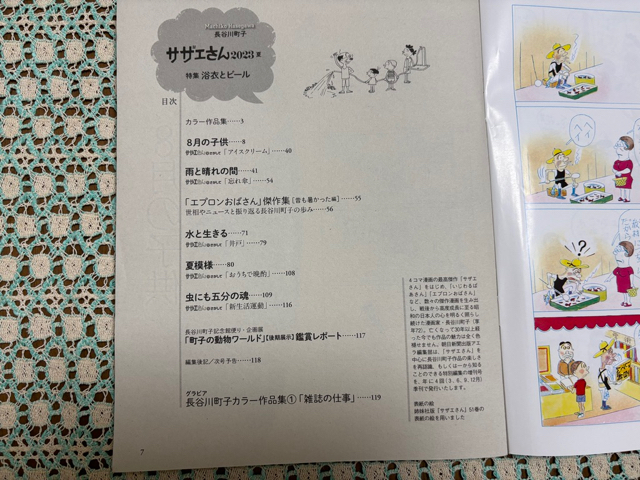 Machiko Hasegawa
長谷川町子
サザエさん2023夏
特集 浴衣とビール
目次
カラー作品集……3
8月の子供……8
「アイスクリーム」……40
雨と晴れの間……41
「忘れ傘」……54
「エプロンおばさん」傑作集[昔も暑かった編]……55
世相やニュースと振り返る長谷川町子の歩み……56
水と生きる……71
「井戸」……79
夏模様……80
「おうちで晩酌」……108
虫にも五分の魂……109
「新生活運動」……116
長谷川町子記念館便り・企画展
「町子の動物ワールド」【後期展示】鑑賞レポート……117
編集後記／次号予告……118
グラビア
長谷川町子カラー作品集①「雑誌の仕事」……119
4コマ漫画の最高傑作「サザエ
さん」をはじめ、「いじわるば
あさん」「エプロンおばさん」
など、数々の傑作漫画を生み出
し、戦後から高度成長に至る昭
和の日本人の心を明るく照らし
続けた漫画家・長谷川町子(享
年72)。亡くなって30年以上経
った今でも作品の魅力は全く色
褪せません。朝日新聞出版アエ
ラ編集部は、「サザエさん」を
中心に長谷川町子作品の楽しさ
を再認識、もしくは一から知る
ことのできる特別編集の増刊号
を、年に4回(3、6、9、12月)
季刊で発行いたします。
表紙の絵
姉妹社版『サザエさん』51巻の
表紙の絵を用いました
7
!?